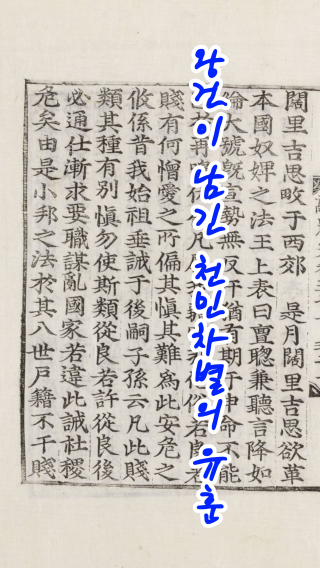 왕건이 남긴 천인차별의 유훈
闊里吉思畋于西郊 是月闊里吉思欲革
本國奴婢之法王上表曰亶聰兼聽言降如
綸大號旣宣勢無反汗猶 期于申命不能
再 凡 俗若良
賤有何憎愛之所偏其愼其難爲此安危之
攸係昔我始祖垂誡于後嗣子孫云凡此賤
類其種有別愼勿使斯類從良若許從良後
必通仕漸求要職謀亂國家若違此誡社稷
危矣由是小邦之法於其八世戶籍不干賤